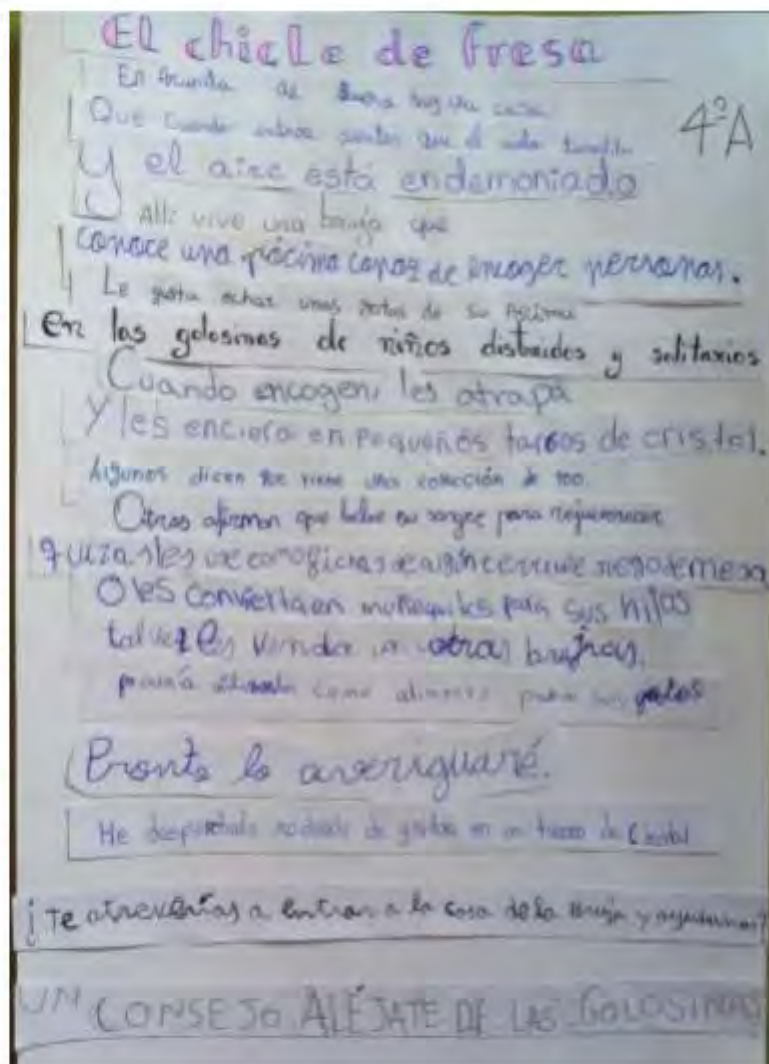 El chicle de fresa
4ºA
En de hay una casa
Que cuando entras sientes que el suelo tiembla
Y el aire está endemoniado
Allí vive una bruja que
conoce una pócima capaz de encoger personas.
Le gusta echar unas gotas de su pócima
En las golosinas de niños distraidos y solitarios
Cuando encogen, les atrapa
Y les enciera en pequeños tarros de cristal.
Algunos dicen que tiene una colección de 100.
Otros afirman que bebe su sangre para rejuvenecer
quizas les use como fichas de juego de mesa
O les convierta en muñequitos para sus hijas
tal vez les venda a otras brujas,
podría utilizarlos como alimento para sus gatos
Pronto lo averiguaré.
He despertado rodeado de gritos en un tarro de Cristal
¿Te atreverías a entrar a la casa de la bruja y ayudarnos?
UN CONSEJO ALÉJATE DE LAS GOLOSINAS